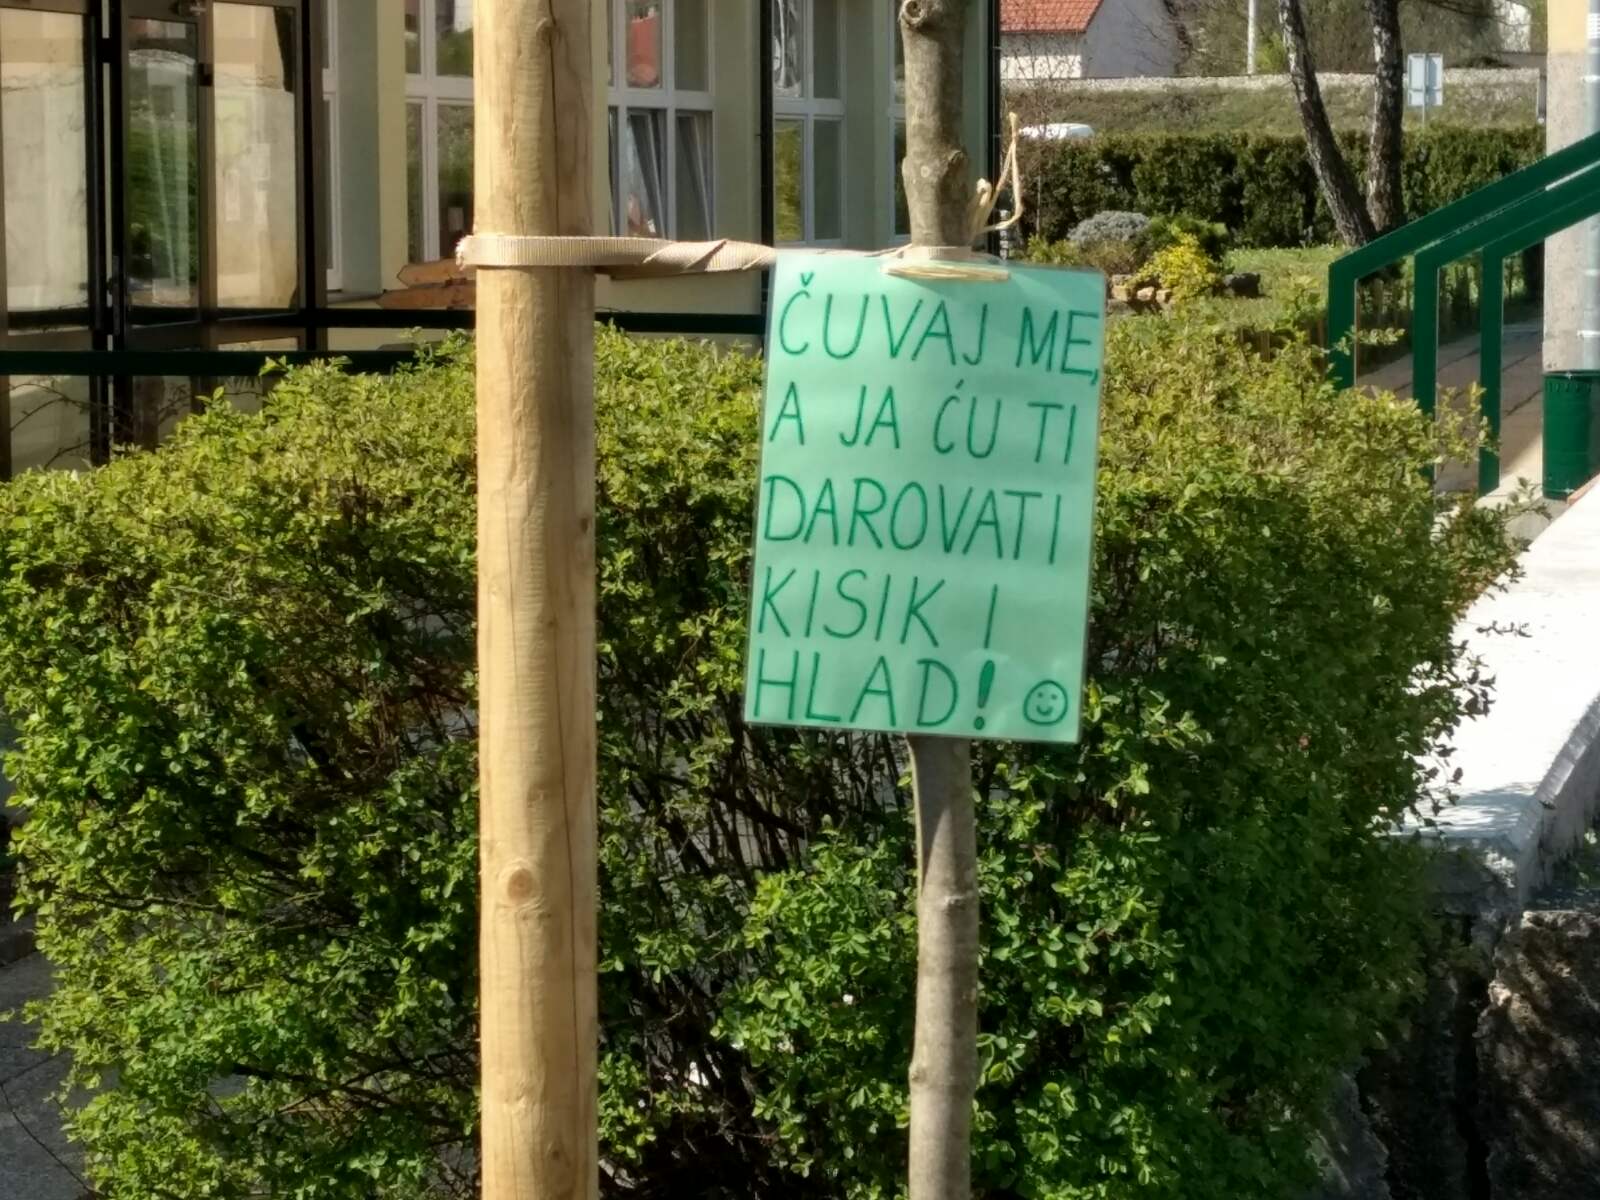 ČUVAJ ME,
A JA ĆU TI
DAROVATI
KISIK I
HLAD!